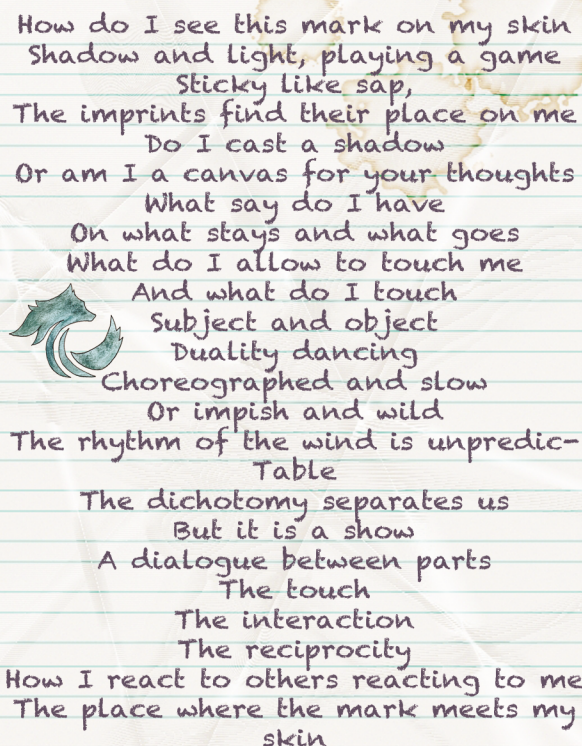 How do I see this mark on my skin
Shadow and light, playing a game
Sticky like sap,
The imprints find their place on me
Do I cast a shadow
Or am I a canvas for your thoughts
What say do I have
On what stays and what goes
What do I allow to touch me
And what do I touch
Subject and object
Duality dancing
Choreographed and slow
Or impish and wild
The rhythm of the wind is unpredic-
Table
The dichotomy separates us
But it is a show
A dialogue between parts
The touch
The interaction
The reciprocity
How I react to others reacting to me
The place where the mark meets my
skin